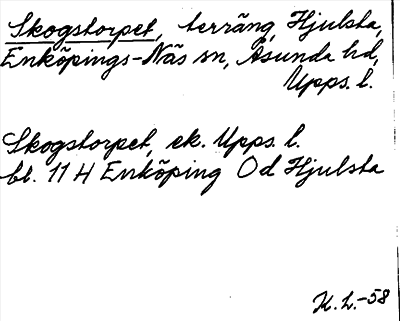 Skogstorpet, terräng, Hjulsta,
Enköpings-Näs sn, Åsunda hd,
Upps. l.
Skogstorpet, ek. Upps. l.
bl. 11 H Enköping Od Hjulsta
K. L.-58